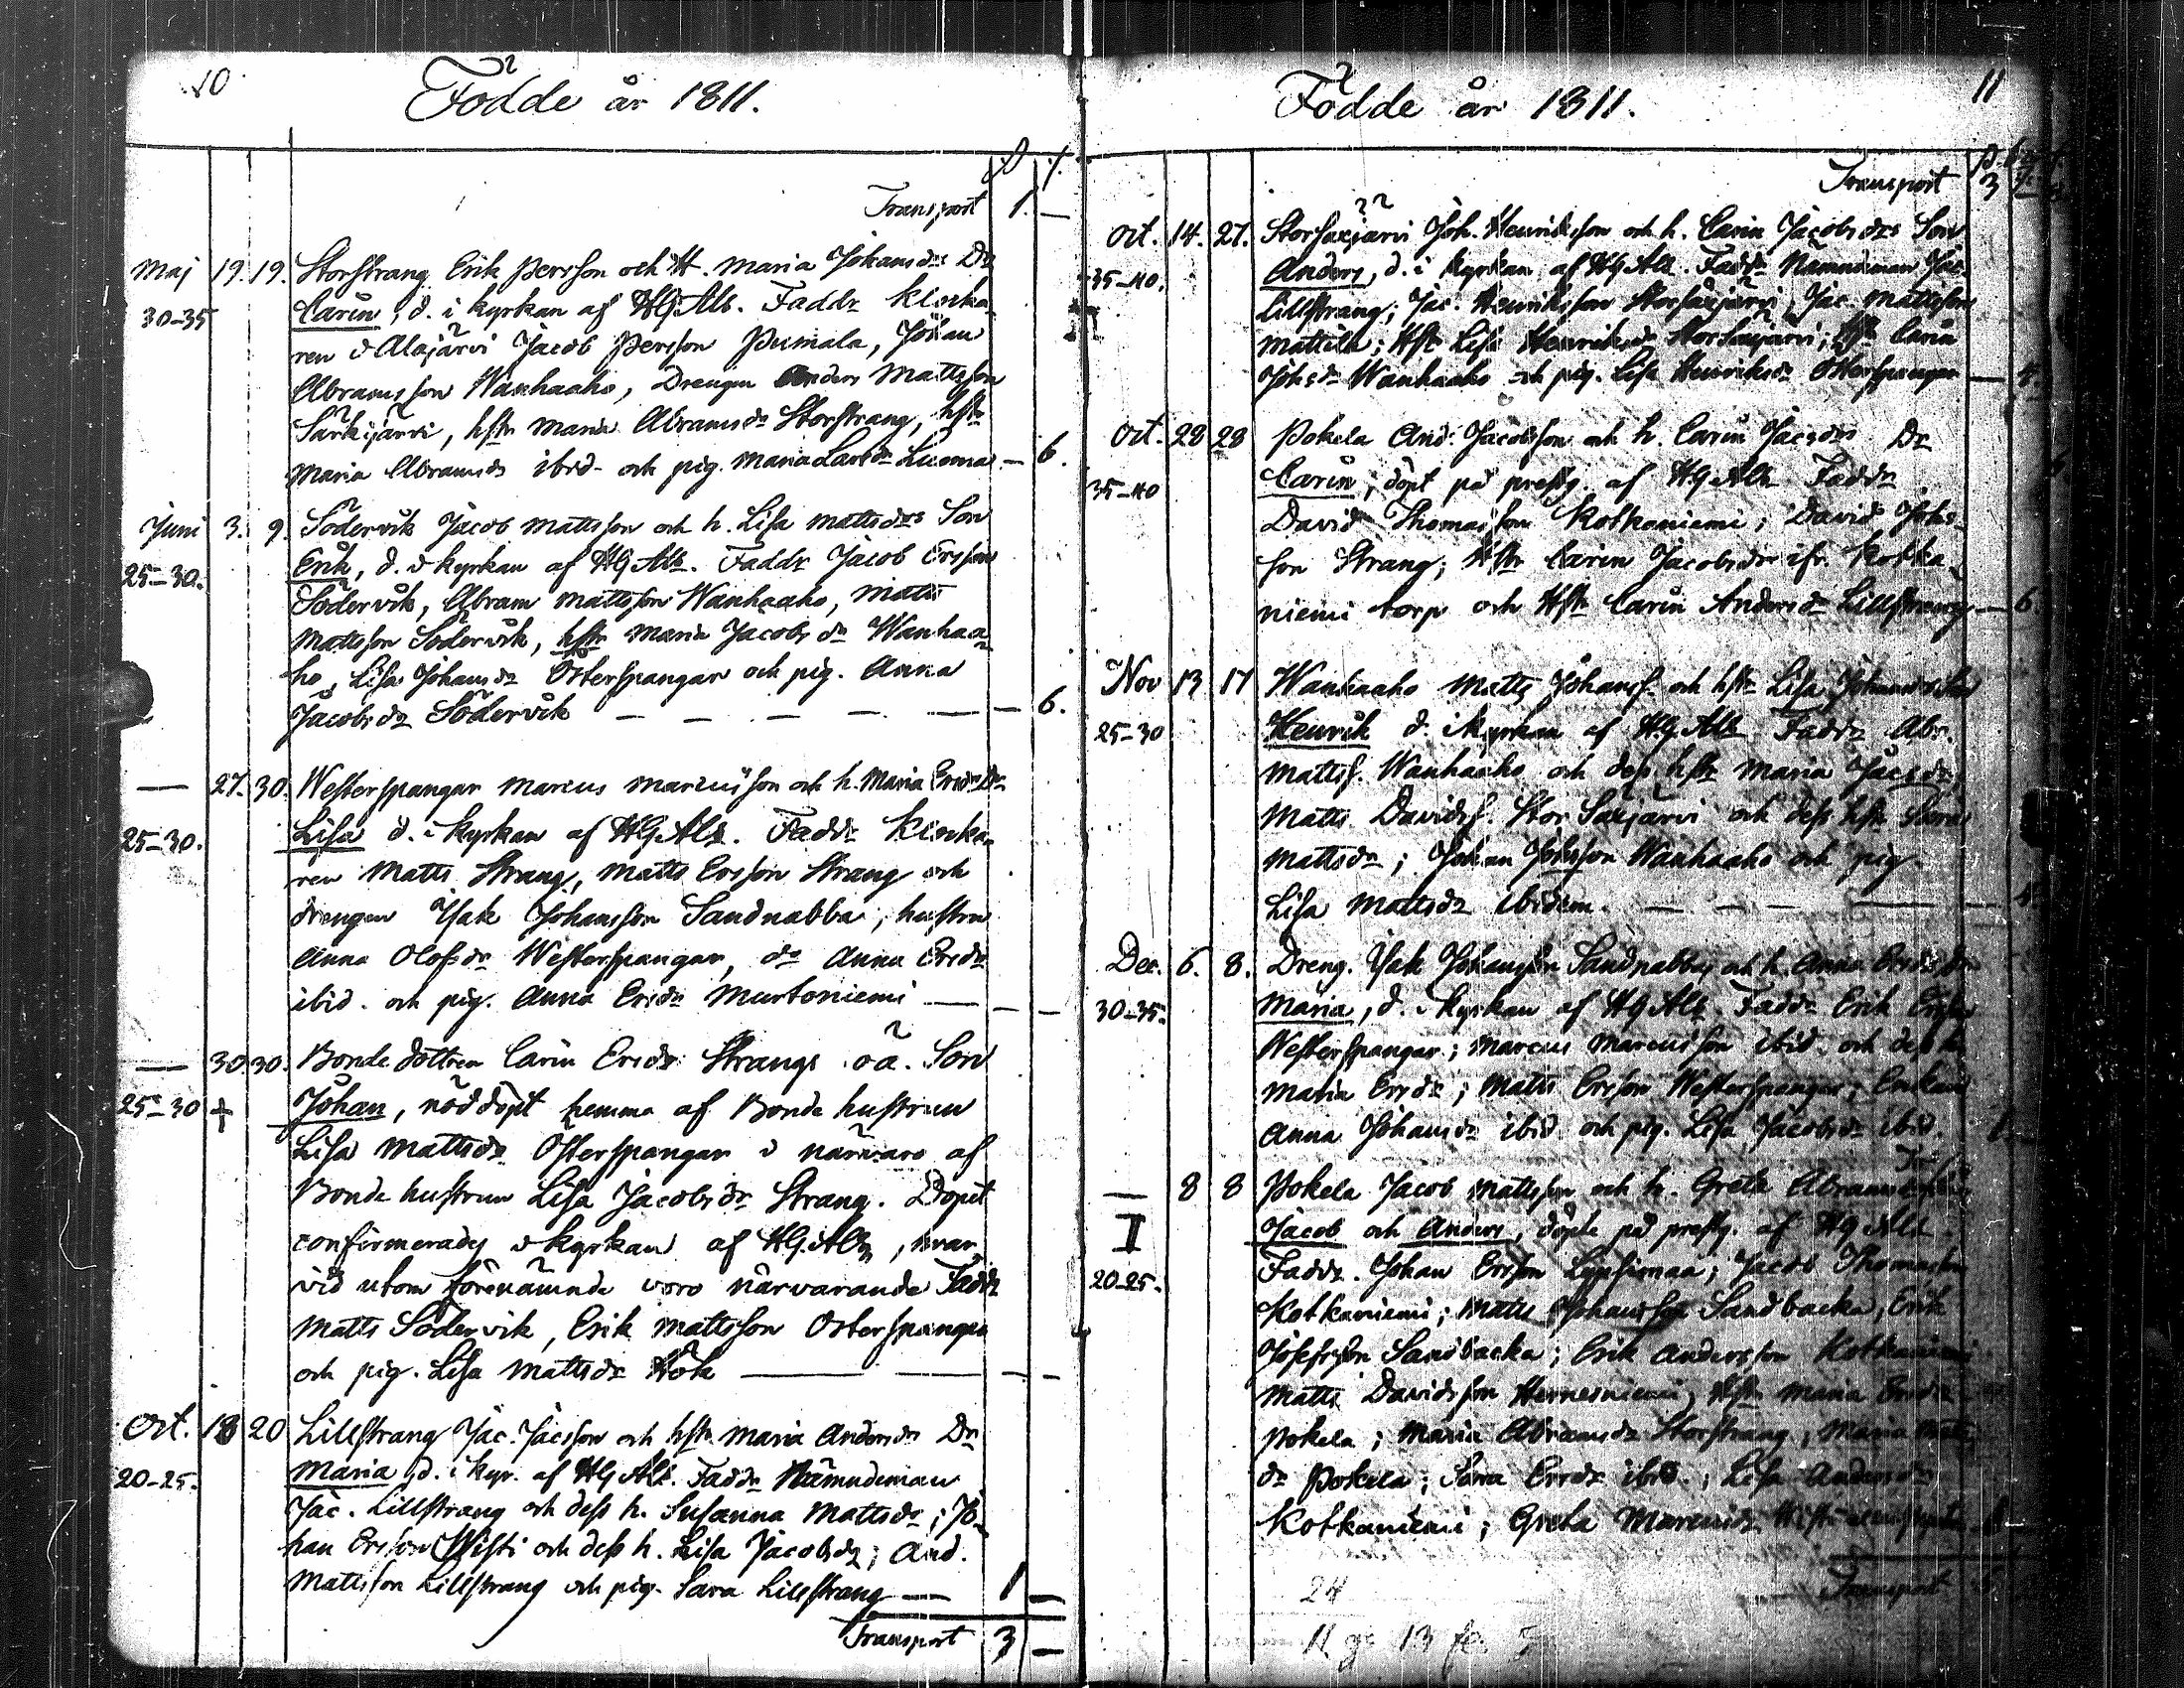 10
Födde år 1811.
Transport 1. —
Maj 19. 19. Storstrang Erik Persson och H. Maria Johansdr Dr
30-35 Carin, d. i kyrkan af HGAlb. Faddr klocka
ren i Alajärvi Jacob Persson Pumala, Johan
Abramsson Wanhaaho, Drengen Anders Mattsson
Särkijärvi, hstr Maria Abramsdr Storstrang, hstr
Maria Abramsdr ibid- och pig. Maria Larsdr Luoma — 6.
Juni 3. 9. Södervik Jacob Mattsson och h. Lisa Mattsdrs Son
25-30. Erik, d. i kyrkan af HGAlb. Faddr Jacob Ersson
Södervik, Abram Mattsson Wanhaaho, Matts
Mattsson Södervik, hstr Maria Jacobsdr Wanhaa
ho, Lisa Johansdr Österspangar och pig. Anna
Jacobsdr Södervik — — — — — 6.
— 27. 30. Westerspangar Marcus Marcusson och h. Maria Ersdrs Dr
25-30. Lisa d. i kyrkan af HGAlb. Faddr Klocka
ren Matts Strang, Matts Ersson Strang och
drengen Isak Johansson Sandnabba, hustru
Anna Olofsdr Westerspangar, dr Anna Ersdr
ibid. och pig. Anna Ersdr Murtoniemi — — —
— 30. 30. Bonde dottren Carin Ersdr Strangs oä. Son
25-30 + Johan, nöddöpt hemma af Bonde hustrun
Lisa Mattsdr Österspangar i närvaro af
Bonde hustrun Lisa Jacobsdr Strang. Dopet
confirmerades i kyrkan af HGAlb, hvar
vid utom förenämnde voro närvarande Faddr
Matts Södervik, Erik Mattsson Österspangar
och pig. Lisa Mattsdr Hök — — — —
Oct. 18 20 Lillstrang Jac. Jacsson och hstr Maria Andersdr Dr
20-25. Maria, d. i kyr. af HGAlb. Faddr Nämndeman
Jac. Lillstrang och dess h. Susanna Mattsdr; Jo
han Ersson Wisti och dess h. Lisa Jacobsdr; And.
Mattsson Lillstrang och pig. Sara Lillstrang — 1 —
Transport 3 —
11
Födde år 1811.
Transport 3
Oct. 14. 27. Storsaxjärvi Joh. Henriksson och h. Carin Jacobsdrs Son
35-40. Anders, d. i kyrkan af HGAlb. Faddr Nämndeman Jac.
Lillstrang; Jac. Henriksson Storsaxjärvi, Jac. Mattsson
Mattila; Hstr Lisa Henriksdr Storsaxjärvi; Hstr Carin
Johsdr Wanhaaho och pig. Lisa Henriksdr Österspangar — 4.
Oct. 28 28 Pokela And. Jacobsson och h. Carin Jacsdrs Dr
35-40 Carin, döpt på prestg. af HGAlb Faddr
David Thomasson Kotkaniemi; David Johs
son Strang; Hstr Carin Jacobsdr ifr. Kotka
niemi torp och Hstr Carin Andersdr Lillstrang — 6
Nov 13 17 Wanhaaho Matts Johanss. och hstr Lisa Johansdrs Son
25-30 Henrik d. i kyrkan af HGAlb Faddr Abr.
Mattss. Wanhaaho och dess hstr Maria Jacsdr;
Matts Davidss. Stor Saxjärvi och dess hstr
Mattsdr; Johan Johsson Wanhaaho och pig.
Lisa Mattsdr ibidem. — — — — 4
Dec. 6. 8. Dreng. Isak Johansson Sandnabba och h. Anna Ersdrs Dr
30-35. Maria, d. i kyrkan af HGAlb. Faddr Erik Ersson
Westerspangar; Marcus Marcusson ibid. och dess h.
Maria Ersdr; Matts Ersson Westerspangar; Enkan
Anna Johansdr ibid. och pig. Lisa Jacobsdr ibid.
— 8 8 Pokela Jacob Mattsson och h. Greta Abramsdrs
II Jacob och Anders, döpte på prestg. af HGAlb.
20-25. Faddr. Johan Ersson; Jacob Thomasson
Kotkaniemi; Matts Johansson Sandbacka, Erik
Josefsson Sandbacka; Erik Andersson Kotkaniemi
Matts Davidsson Hernesniemi; Hstr Maria Ersdr
Pokela; Maria Abramsdr Storstrang; Maria Matts
dr Pokela; Sara Ersdr ibid.; Lisa Andersdr
Kotkaniemi; Greta Marcusdr
Transport
24
11 13